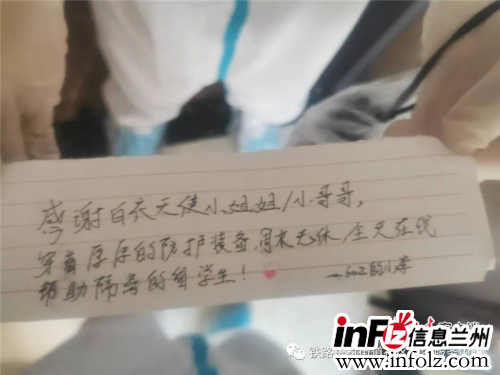 感谢白衣天使小姐姐/小哥哥,
穿着厚厚的防护装备,周末无休,全天在线
帮助隔离的留学生!
—602的小李
铁路
infLZ 信息兰州
www.infolz.com